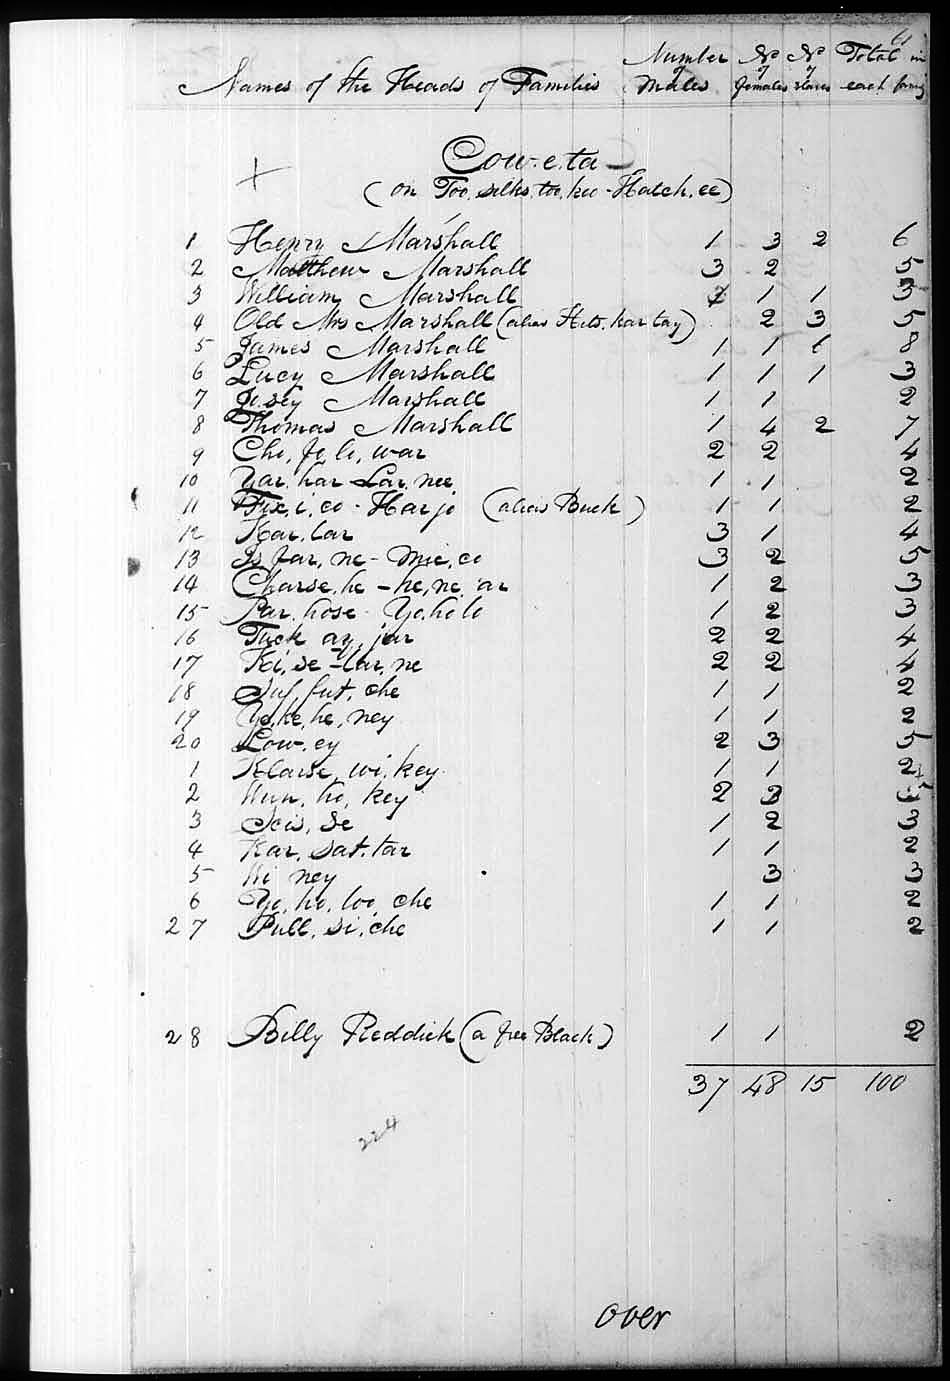 61
Names of the Heads of Families Number of Males No of females No of slaves Total in each family
Cow-e-ta
(on Too, selks, too, koo-Hatch, ee)
1 Henry Marshall 1 3 2 6
2 Matthew Marshall 3 2 5
3 William Marshall 1 1 1 3
4 Old Mrs Marshall (alias Hits, kar tay) 2 3 5
5 James Marshall 1 1 6 8
6 Lucy Marshall 1 1 1 3
7 Josey Marshall 1 1 2
8 Thomas Marshall 1 4 2 7
9 Cho, fo, lo, war 2 2 4
10 Yar, har Lar, nee 1 1 2
11 Fix, i, co - Harjo (alias Buck) 1 1 2
12 Kar, lar 3 1 4
13 Is far, ne - Mic, co 3 2 5
14 Charse, he - he, ne, ar 1 2 3
15 Par, hose - Yo, ho lo 1 2 3
16 Tuck ay, jar 2 2 4
17 Ki, se - lar, ne 2 2 4
18 fut, che 1 1 2
19 Yo, ke, he, ney 1 1 2
20 Low, ey 2 3 5
1 Klarse, wi, key 1 1 2
2 Wun, ho, key 2 3 5
3 Scis, se 1 2 3
4 Kar, sat, tar 1 1 2
5 Wi ney 3 3
6 Yo, ho, loo, che 1 1 2
27 Pull, si, che 1 1 2
28 Billy Reddick (a free Black) 1 1 2
37 48 15 100
224
over